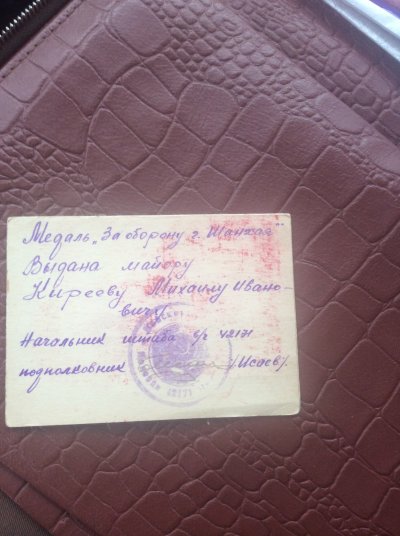 Медаль „За оборону г. Шанхая"
Выдана майору
Кирееву Михаилу Ивано-
вичу.
Начальник штаба в/ч 42171
подполковник /Исаев/.